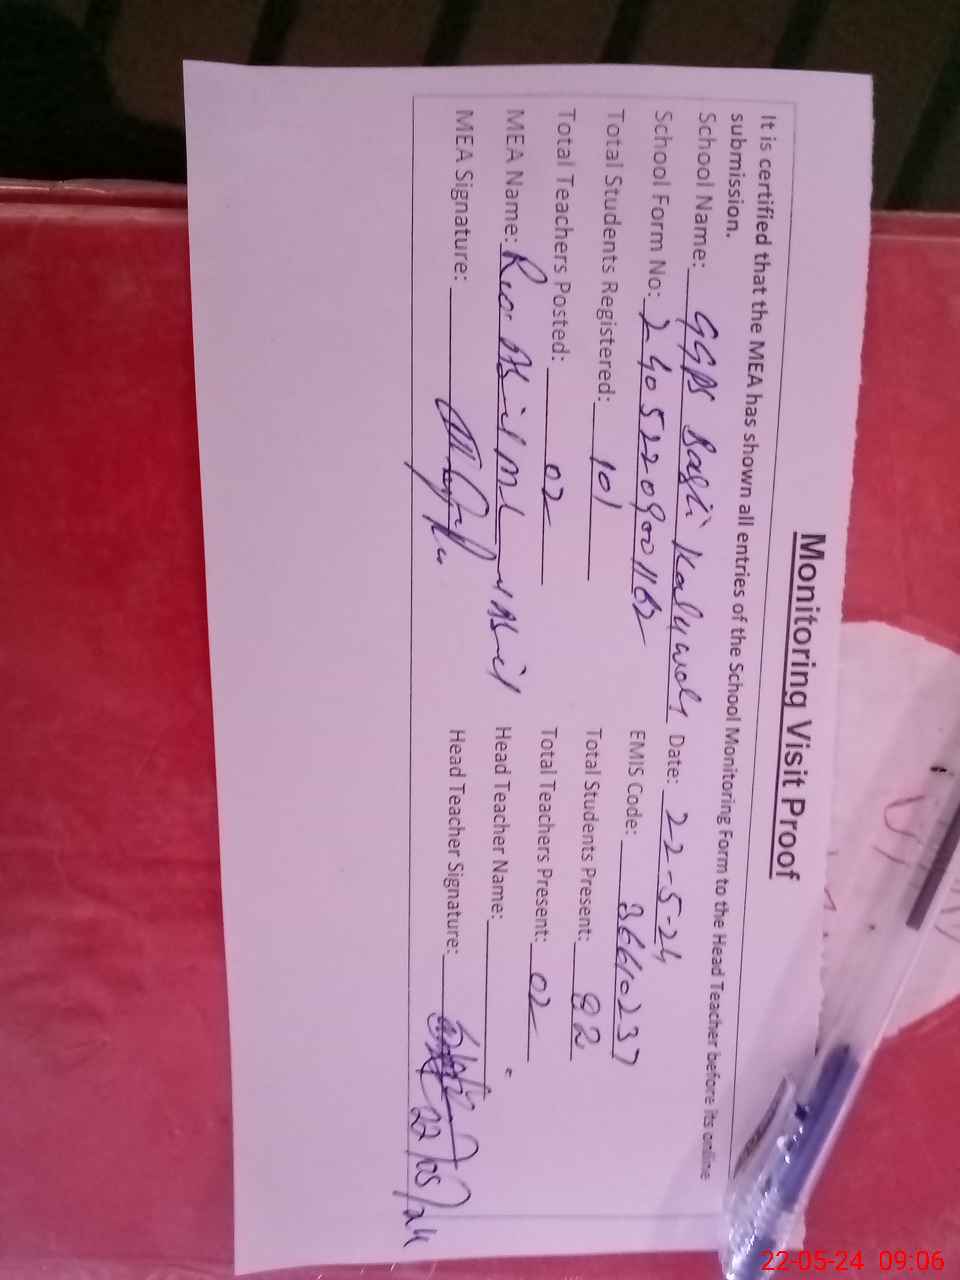 Monitoring Visit Proof
It is certified that the MEA has shown all entries of the School Monitoring Form to the Head Teacher before its online
submission.
School Name: GGPS Basti Kaluwala Date: 22-5-24
School Form No: 24052209001162 EMIS Code: 36610237
Total Students Registered: 101 Total Students Present: 82
Total Teachers Posted: 02 Total Teachers Present: 02
MEA Name: Head Teacher Name:
MEA Signature: Head Teacher Signature:
22/05/24
22-05-24 09:06